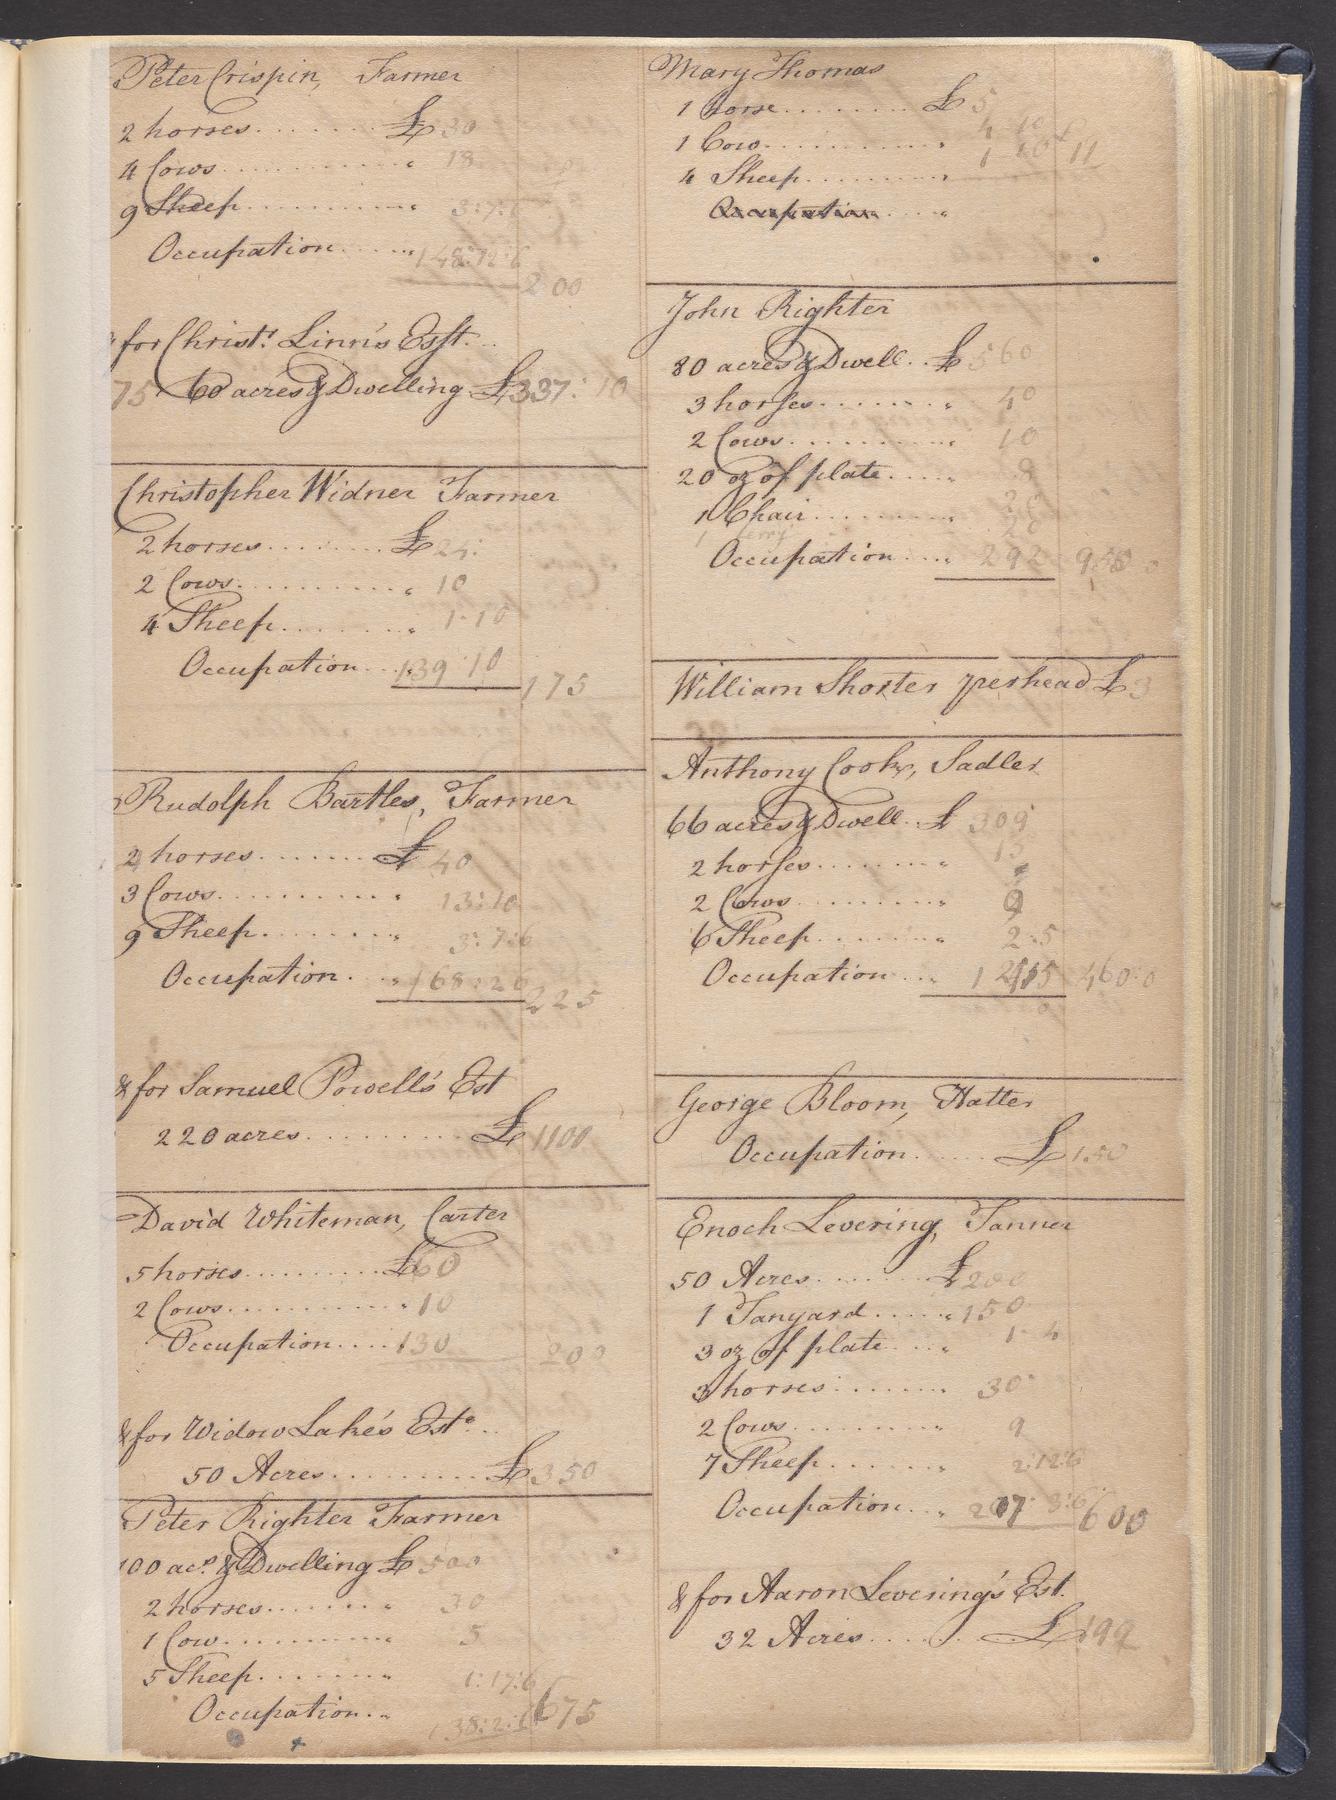 Peter Crispin, Farmer
2 horses ........ £ 30
4 Cows ............ " 18
9 Sheep ............ " 3:7:6
Occupation ..... " 148:12:6
200
& for Christ.r Linn's Est. ..
75 60 acres & Dwelling £337:10
Christopher Widner Farmer
2 horses ........ £ 24:
2 Cows ............ " 10
4 Sheep ........ " 1-10
Occupation ... " 139 10
175
Rudolph Bartles, Farmer
2 horses ........ £ 40
3 Cows ........... " 13:10
9 Sheep ......... " 3:7:6
Occupation ... " 168:2:6
225
& for Samuel Powell's Est
220 acres .......... £ 1100
David Whiteman, Carter
5 horses .......... £60
2 Cows ............ " 10
Occupation .... 130 200
& for Widow Lake's Est.e ..
50 Acres .......... £350
Peter Righter Farmer
100 acs. & Dwelling £ 500
2 horses ........ " 30
1 Cow .......... " 5
5 Sheep ........ " 1:17:6
Occupation .. " 138:2:6 675
Mary Thomas
1 horse ........ £ 5
1 Cow ............ " 4 10
4 Sheep ........ " 1 10 11
Occupation .... "
John Righter
80 acres & Dwell .. £ 560
3 horses ........ " 40
2 Cows .......... " 10
20 oz of plate .... " 8
1 Chair ......... " 20
1 ferry 20
Occupation .... " 292 950
William Shorter perhead £3
Anthony Cook, Sadler
66 acres & Dwell .. £ 309
2 horses ........ " 15
2 Cows .......... " 9
6 Sheep ........ " 2:5
Occupation ... "
460:0
George Bloom, Hatter
Occupation ...... £150
Enoch Levering, Tanner
50 Acres ........ £200
1 Tanyard ..... " 150
3 oz of plate .... " 1 4
3 horses ........ " 30
2 Cows .......... " 9
7 Sheep ........ " 2:12:6
Occupation ... " 207:3:6 600
& for Aaron Levering's Est.
32 Acres ........ £192